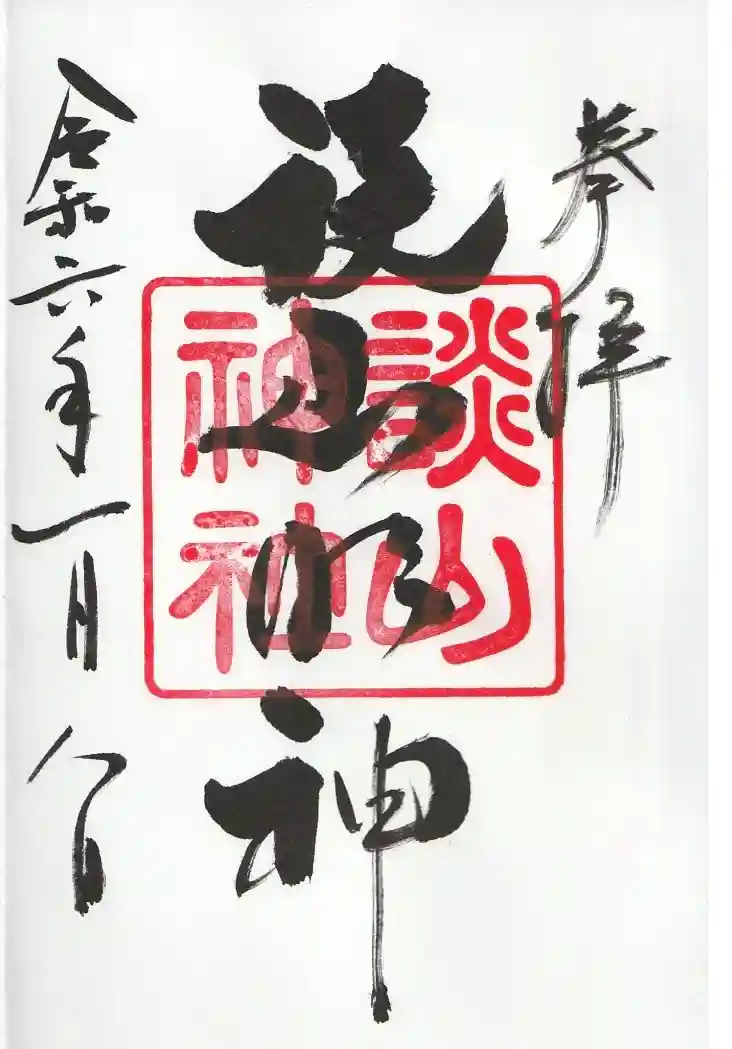 奉拝
談山明神
談山
神社
令和六年一月八日